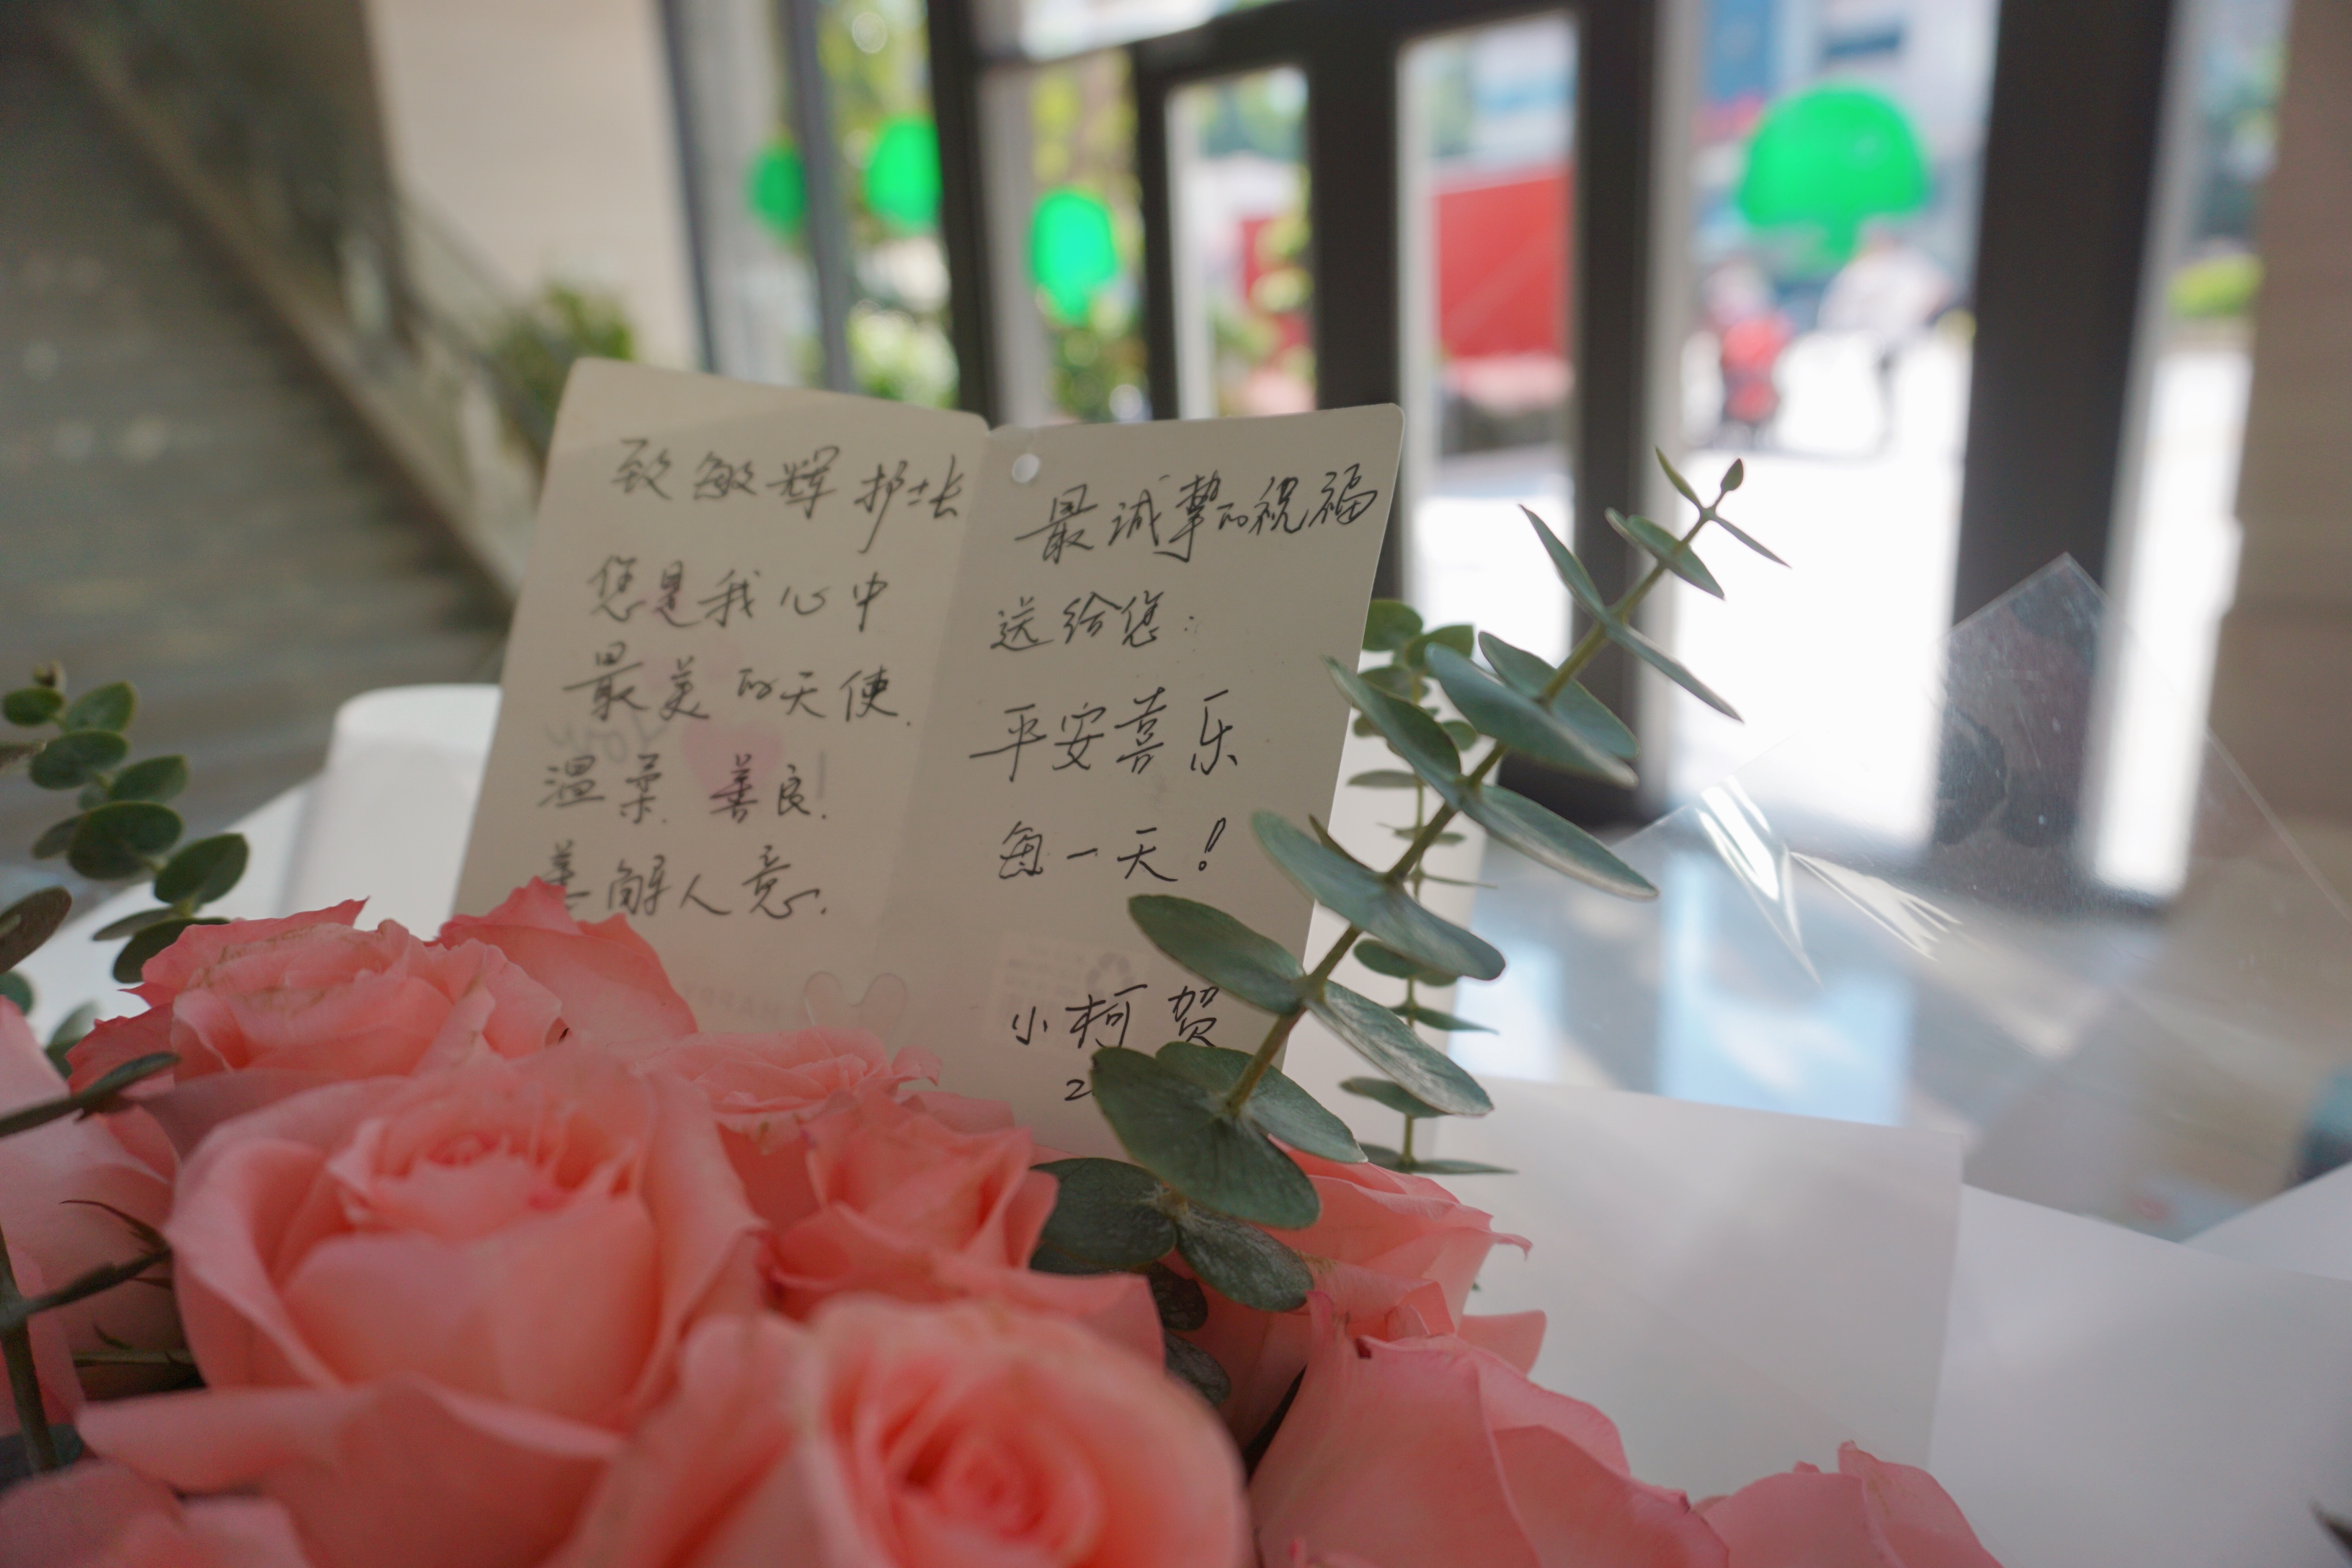 致敏辉护士长
您是我心中
最美的天使.
温柔. 善良!
善解人意.
最诚挚的祝福
送给您:
平安喜乐
每一天!
小柯贺
2